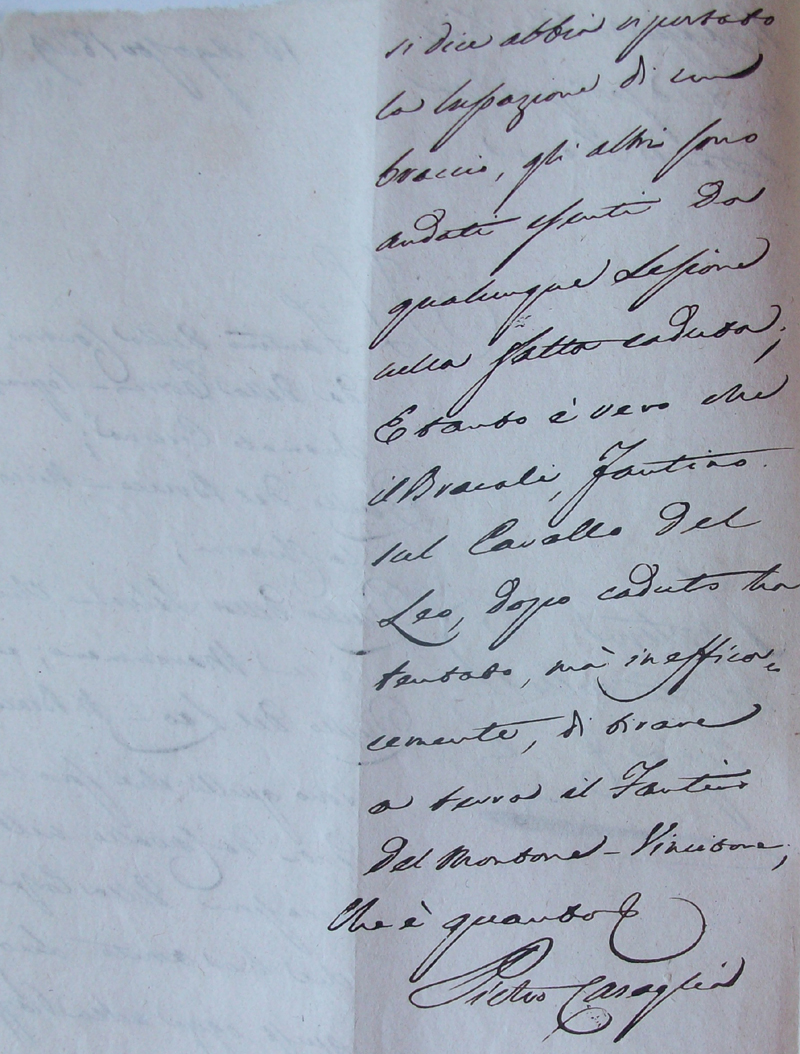 si dice abbia riportato
la lussazione di un
braccio, gli altri sono
andati esenti da
qualunque lesione
nella fatta caduta;
E tanto è vero che
il Bracali, Fantino
sul Cavallo del
Leo, dopo caduto ha
tentato, mà ineffica-
cemente, di tirare
a terra il Fantino
del Montone - Vincitore,
Che è quanto
Pietro Casaglia